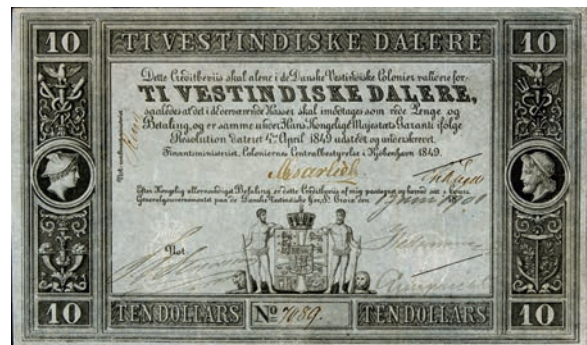 10 TI VESTINDISKE DALERE 10
Dette Creditbeviis skal alene i de Danske Vestindiske Colonier validere for
TI VESTINDISKE DALERE,
saaledes at det i de derværende Kasser skal imodtages som rede Penge og
Betaling, og er samme under Hans Kongelige Majestæts Garanti ifølge
Resolution dateret 4de April 1849 udstedt og underskrevet.
Finantsministeriet, Coloniernes Centralbestyrelse i Kjøbenhavn 1849.
Efter Kongelig allernaadigst Befaling er dette Creditbeviis af mig paategnet og herved sat i Cours.
Generalgouvernementet paa de Dansk-Vestindiske Øer, St. Croix den
Not
10 TEN DOLLARS No 7089. TEN DOLLARS 10